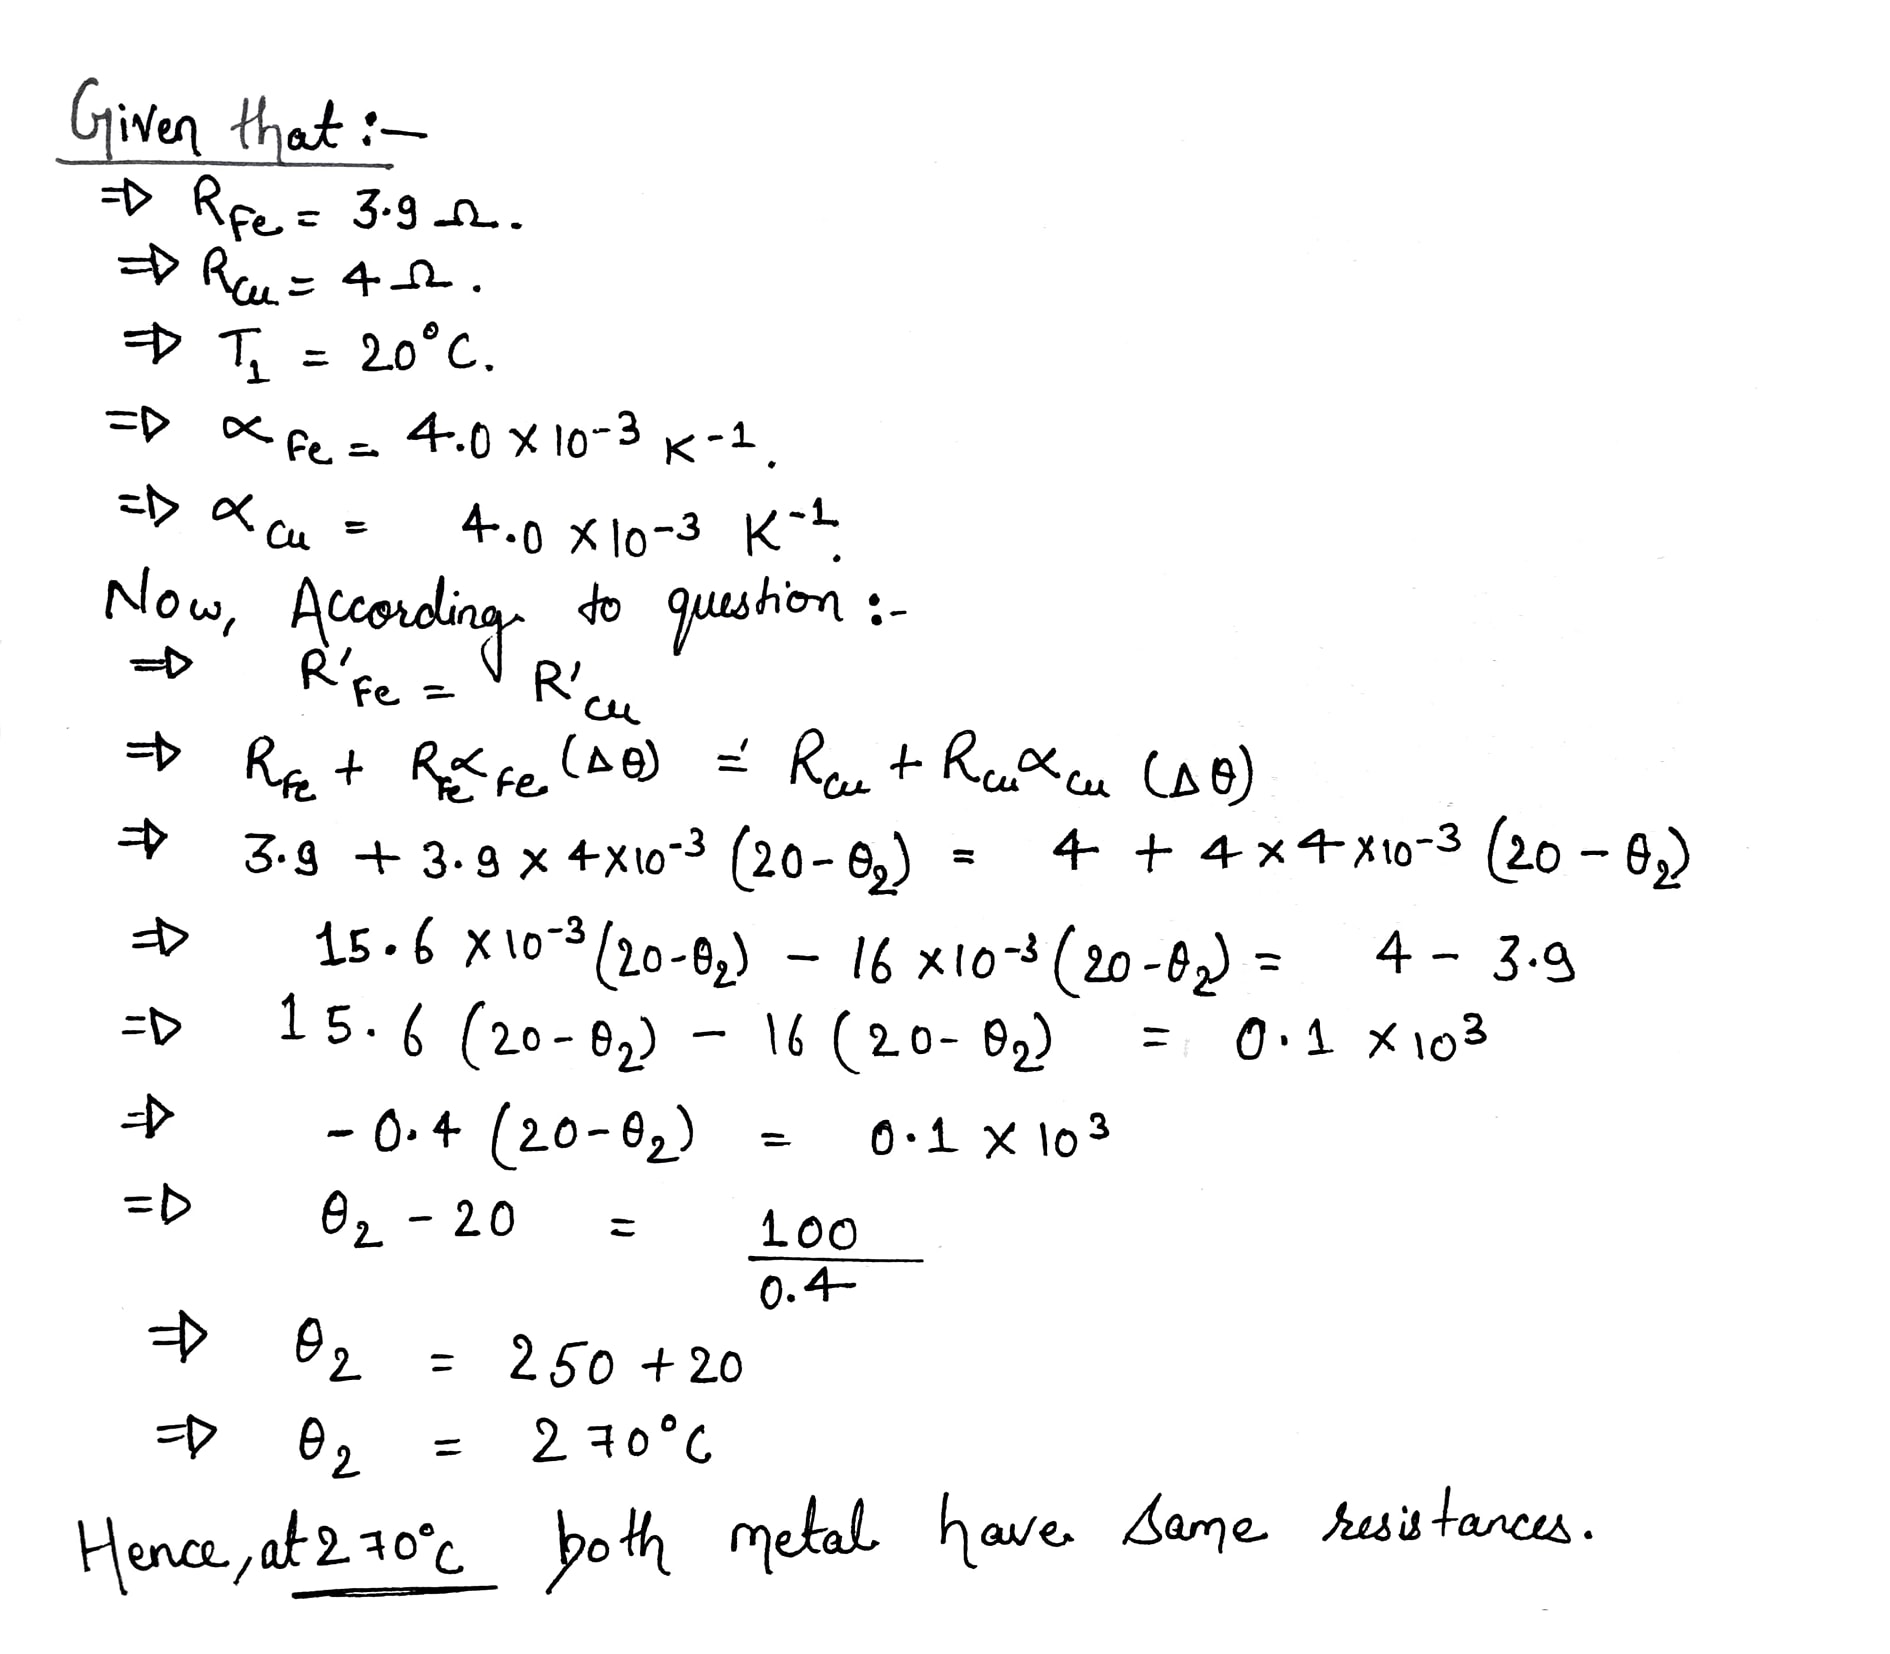 Given that :-
⇒ R_Fe = 3.9 Ω.
⇒ R_Cu = 4 Ω.
⇒ T_1 = 20°C.
⇒ ∝_Fe = 4.0 × 10^-3 K^-1.
⇒ ∝_Cu = 4.0 × 10^-3 K^-1.
Now, According to question :-
⇒ R'_Fe = R'_Cu
⇒ R_Fe + R_Fe ∝_Fe (Δθ) = R_Cu + R_Cu ∝_Cu (Δθ)
⇒ 3.9 + 3.9 × 4×10^-3 (20-θ_2) = 4 + 4 × 4 ×10^-3 (20 - θ_2)
⇒ 15.6 × 10^-3 (20-θ_2) - 16 ×10^-3 (20-θ_2) = 4 - 3.9
⇒ 15.6 (20-θ_2) - 16 (20-θ_2) = 0.1 × 10^3
⇒ -0.4 (20-θ_2) = 0.1 × 10^3
⇒ θ_2 - 20 = 100/0.4
⇒ θ_2 = 250 + 20
⇒ θ_2 = 270°C
Hence, at 270°C both metal have same resistances.